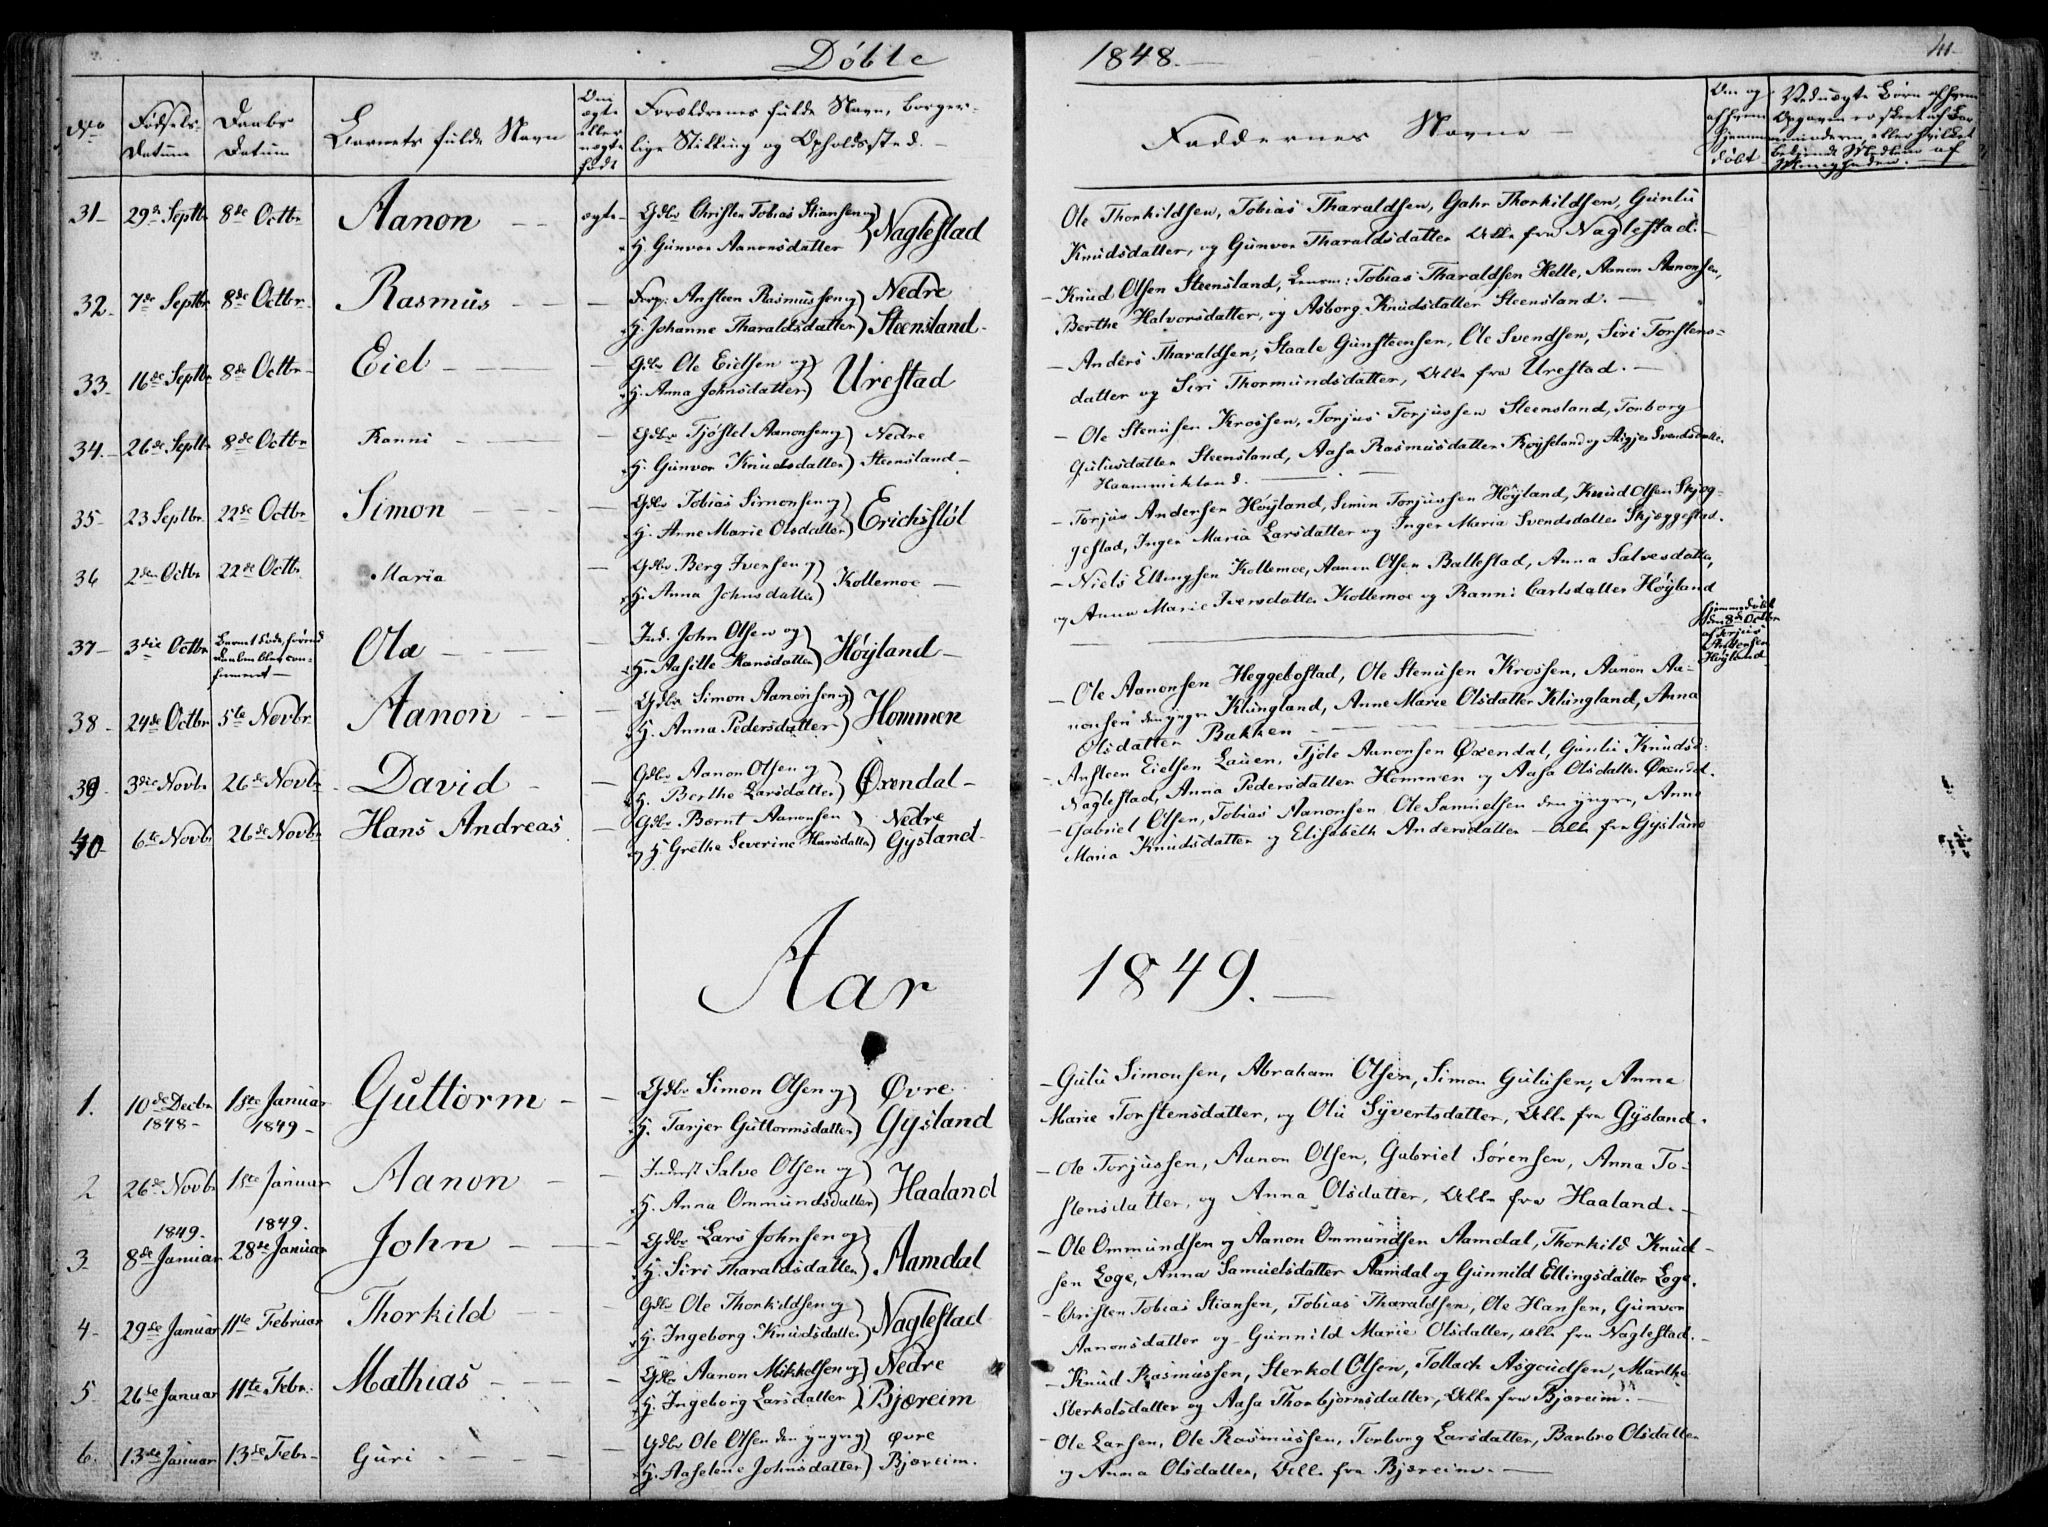 Døbte
1848.
41
No
Fødsels-
datum
Daabs
datum
Barnets fulde Navn
Om
ægte
eller
uægte
født
Forældrenes fulde Navn, borger-
lige Stilling og Opholdssted.
Faddernes Navne
Om og
af hvem
hjemme
døbt
31 29de Septbr 8de Octbr Aanon ægte Gdbr Christen Tobias Stiansen og Naglestad
H. Gunvor Aanonsdatter
Ole Thorkildsen, Tobias Tharaldsen, Gahr Thorkildsen, Gunlu
Knudsdatter, og Gunvor Tharaldsdatter Alle fra Naglestad.
32. 7de Septbr 8de Octbr. Rasmus Ansteen Rasmussen og Nedre
H. Johanne Tharaldsdatter Steensland
Knud Olsen Steensland, Tobias Tharaldsen Helle, Aanon Aanonsen,
Berthe Halvorsdatter, og Asborg Knudsdatter Steensland.
33. 16de Septbr 8de Octbr Eiel Gdbr Ole Eielsen og Urestad
H. Anna Johnsdatter
Anders Tharaldsen, Staale Gunsteensen, Ole Svendsen, Siri Torstens-
datter og Siri Thormundsdatter, Alle fra Urestad.
34. 26de Septbr 8de Octbr Ranni Gdbr Tjøstel Aanonsen og Nedre
H. Gunvor Knudsdatter Steensland
Ole Stenusen Krossen, Torjus Torjussen Steensland, Tonborg
Gulusdatter Steensland, Aasa Rasmusdatter Røyseland og Svendsdatter
35 23 Septbr 22de Octbr Simon Gdbr Tobias Simonsen og Erichsstøl
H. Anne Marie Olsdatter
Torjus Andersen Höyland, Simin Torjussen Höyland, Knud Olsen Skjeg-
gestad, Inger Maria Larsdatter og Inger Maria Svendsdatter Skjæggestad.
36 2den Octbr 22de Octbr Maria Gdbr Berg Iversen og Kollemoe
H. Anna Johnsdatter
Niels Ellingsen Kollemoe, Aanon Olsen Ballestad, Anna Salvesdatter,
og Anna Marie Iversdatter Kollemoe og Ranni Carlsdatter Höyland
37 3die Octbr Barnet døde, førend
Daaben blev con-
firmeret
Ola Ind. John Olsen og Höyland
H. Aasille Hansdatter
Hjemmedøbt
den 8de Octbr
af Torjus
Anstensen
Höyland
38 24de Octbr 5te Novbr Aanon Gdbr Simon Aanonsen og Hommen
H. Anna Pedersdatter
Ole Aanonsen Heggebostad, Ole Stenusen Krossen, Aanon Aa-
nonsen den yngre Klungland, Anne Marie Olsdatter Klungland, Anna
Olsdatter Bakken
39 3die Novbr 26de Novbr David Gdbr Aanon Olsen og Øxendal
H. Berthe Larsdatter
Ansteen Eielsen Lauen, Tjøle Aanonsen Øxendal, Gunlu Knudsd:
Naglestad, Anna Pedersdatter Hommen og Aasa Olsdatter Øxendal.
40 6te Novbr 26de Novbr Hans Andreas Gdbr Bærnt Aanonsen Nedre
og H. Grethe Severine Hansdatter Gysland
Gabriel Olsen, Tobias Aanonsen, Ole Samuelsen den yngre, Anne
Maria Knudsdatter og Elisabeth Andersdatter Alle fra Gysland
Aar 1849.
1. 10de Decbr 1848 1ste Januar 1849 Guttorm Gdbr Simon Olsen og Øvre
H. Tarjer Guttormsdatter Gysland
Gulu Simonsen, Abraham Olsen, Simon Gulusen, Anne
Marie Torstensdatter, og Olu Syvertsdatter, Alle fra Gysland.
2 26de Novbr 1ste Januar Aanon Inderst Salve Olsen og Haaland
H. Anna Ommundsdatter
Ole Torjussen, Aanon Olsen, Gabriel Sørensen, Anna To-
stensdatter, og Anna Olsdatter, Alle fra Haaland.
3 1849. 8de Januar 1849. 28de Januar John Gdbr Lars Johnsen og Aamdal
H. Siri Tharaldsdatter
Ole Ommundsen og Aanon Ommundsen Aamdal, Thorkild Knud-
sen Loge, Anna Samuelsdatter Aamdal og Gunnild Ellingsdatter Loge.
4 29de Januar 11te Februar Thorkild Gdbr Ole Thorkildsen og Naglestad
H. Ingeborg Knudsdatter
Christen Tobias Stiansen, Tobias Tharaldsen, Ole Hansen, Gunvor
Aanonsdatter og Gunnild Marie Olsdatter, Alle fra Naglestad.
5 26de Januar 11te Febr: Mathias Gdbr Aanon Mikkelsen og Nedre
H. Ingeborg Larsdatter Bjæreim
Knud Rasmussen, Sterkol Olsen, Tollach Asgoudsen, Marthe
Sterkolsdatter og Aasa Thorbjornsdatter, Alle fra Bjæreim.
6. 13de Januar 13de Febr Guri Gdbr Ole Olsen den yngre og Øvre
H. Aaselene Johnsdatter Bjæreim.
Ole Larsen, Ole Rasmussen, Torborg Larsdatter, Barbro Olsdatter
og Anna Olsdatter, Alle fra Bjæreim.